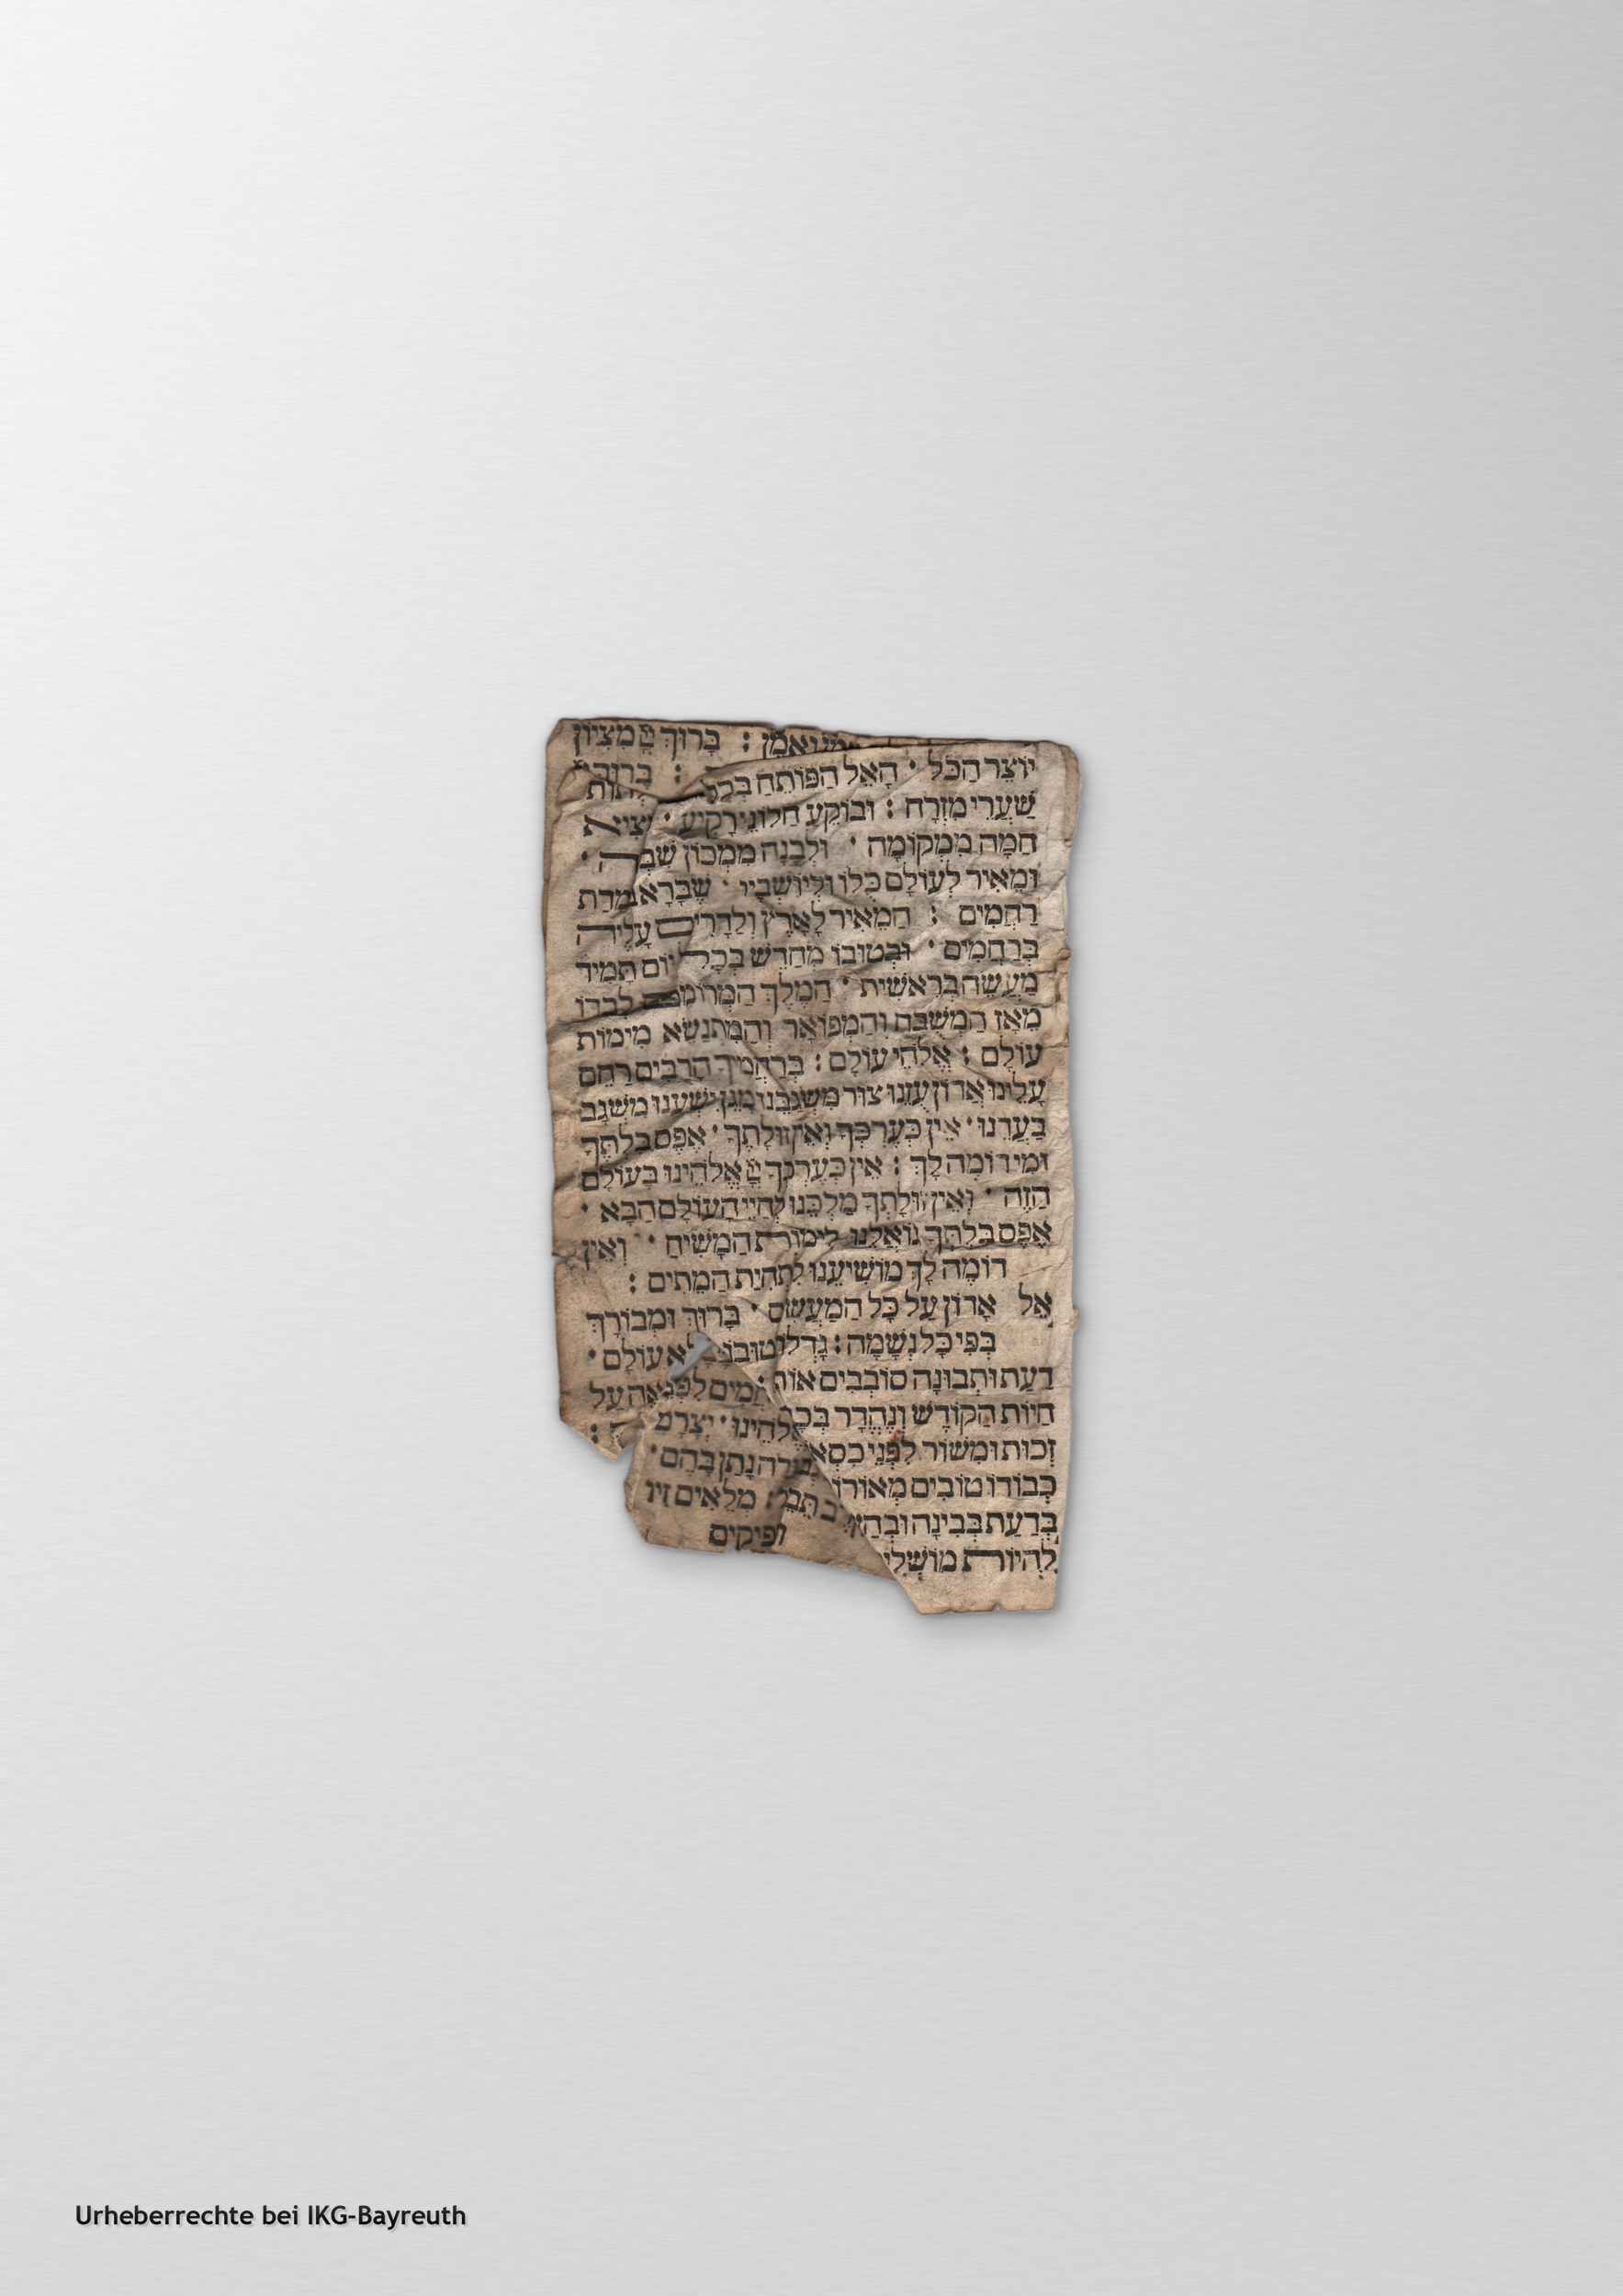 וְאָמֵן : בָּרוּךְ יְיָ מִצִיוֹן
: בָּרוּךְ
יוֹצֵר הַכֹּל · הָאֵל הַפּוֹתֵחַ בְּכָל
שַׁעֲרֵי מִזְרָח : וּבוֹקֵעַ חַלּוֹנֵי רָקִיעַ · מוֹצִיא
חַמָּה מִמְּקוֹמָהּ · וּלְבָנָה מִמְּכוֹן שִׁבְתָּהּ ·
וּמֵאִיר לְעוֹלָם כֻּלּוֹ וּלְיוֹשְׁבָיו · שֶׁבָּרָא בְּמִדַּת
רַחֲמִים : הַמֵּאִיר לָאָרֶץ וְלַדָּרִים עָלֶיהָ
בְּרַחֲמִים · וּבְטוּבוֹ מְחַדֵּשׁ בְּכָל יוֹם תָּמִיד
מַעֲשֵׂה בְרֵאשִׁית · הַמֶּלֶךְ הַמְרוֹמָם לְבַדּוֹ
מֵאָז הַמְשֻׁבָּח וְהַמְפוֹאָר וְהַמִּתְנַשֵּׂא מִימוֹת
עוֹלָם : אֱלֹהֵי עוֹלָם : בְּרַחֲמֶיךָ הָרַבִּים רַחֵם
עָלֵינוּ אֲדוֹן עֻזֵּנוּ צוּר מִשְׂגַּבֵּנוּ מָגֵן יִשְׁעֵנוּ מִשְׂגָּב
בַּעֲדֵנוּ · אֵין כְּעֶרְכְּךָ וְאֵין זוּלָתֶךָ · אֶפֶס בִּלְתֶּךָ
וּמִי דוֹמֶה לָךְ : אֵין כְּעֶרְכְּךָ יְיָ אֱלֹהֵינוּ בָּעוֹלָם
הַזֶּה · וְאֵין זוּלָתְךָ מַלְכֵּנוּ לְחַיֵּי הָעוֹלָם הַבָּא ·
אֶפֶס בִּלְתְּךָ גוֹאֲלֵנוּ לִימוֹת הַמָּשִׁיחַ · וְאֵין
דוֹמֶה לָךְ מוֹשִׁיעֵנוּ לִתְחִיַּת הַמֵּתִים :
אֵל אָדוֹן עַל כָּל הַמַּעֲשִׂים · בָּרוּךְ וּמְבוֹרָךְ
בְּפִי כָּל נְשָׁמָה : גָּדְלוֹ וְטוּבוֹ מָלֵא עוֹלָם ·
דַּעַת וּתְבוּנָה סוֹבְבִים אוֹת
חַיּוֹת הַקּוֹדֶשׁ וְנֶהְדָּר בְּכָ
זְכוּת וּמִישׁוֹר לִפְנֵי כִסְא
כְּבוֹדוֹ טוֹבִים מְאוֹרוֹ
בְּדַעַת בְּבִינָה וּבְהַ
לִהְיוֹת מוֹשְׁלִי
אֱלֹהֵינוּ · יְצָרָם
וּגְבוּרָה נָתַן בָּהֶם ·
תֵּבֵל : מְלֵאִים זִיו
וּמְפִיקִים
Urheberrechte bei IKG-Bayreuth